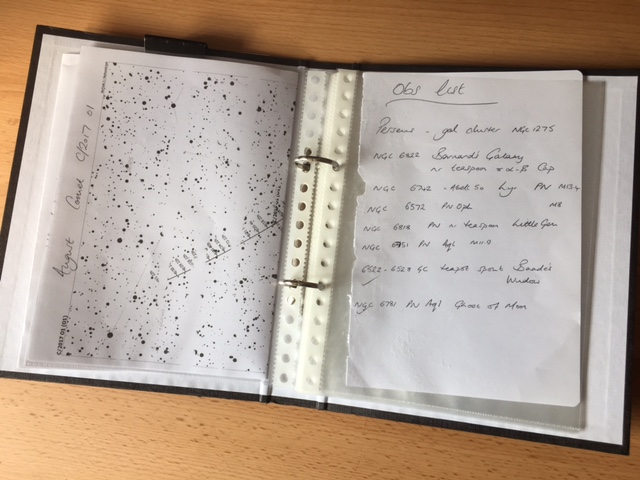 August Comet C/2017 O1
C/2017 O1 (O1)
Obs List
Perseus - gal cluster NGC 1275
NGC 6822 Barnard's Galaxy
nr teaspoon + α-β Cap
NGC 6742 - Abell 50 Lyr PN M13.4
NGC 6572 PN Oph M8
NGC 6818 PN nr teaspoon Little Gem
NGC 6751 PN Aql M11.9
6522 - 6528 GC teapot spout Baade's
Window
NGC 6781 PN Aql Ghost of Moon